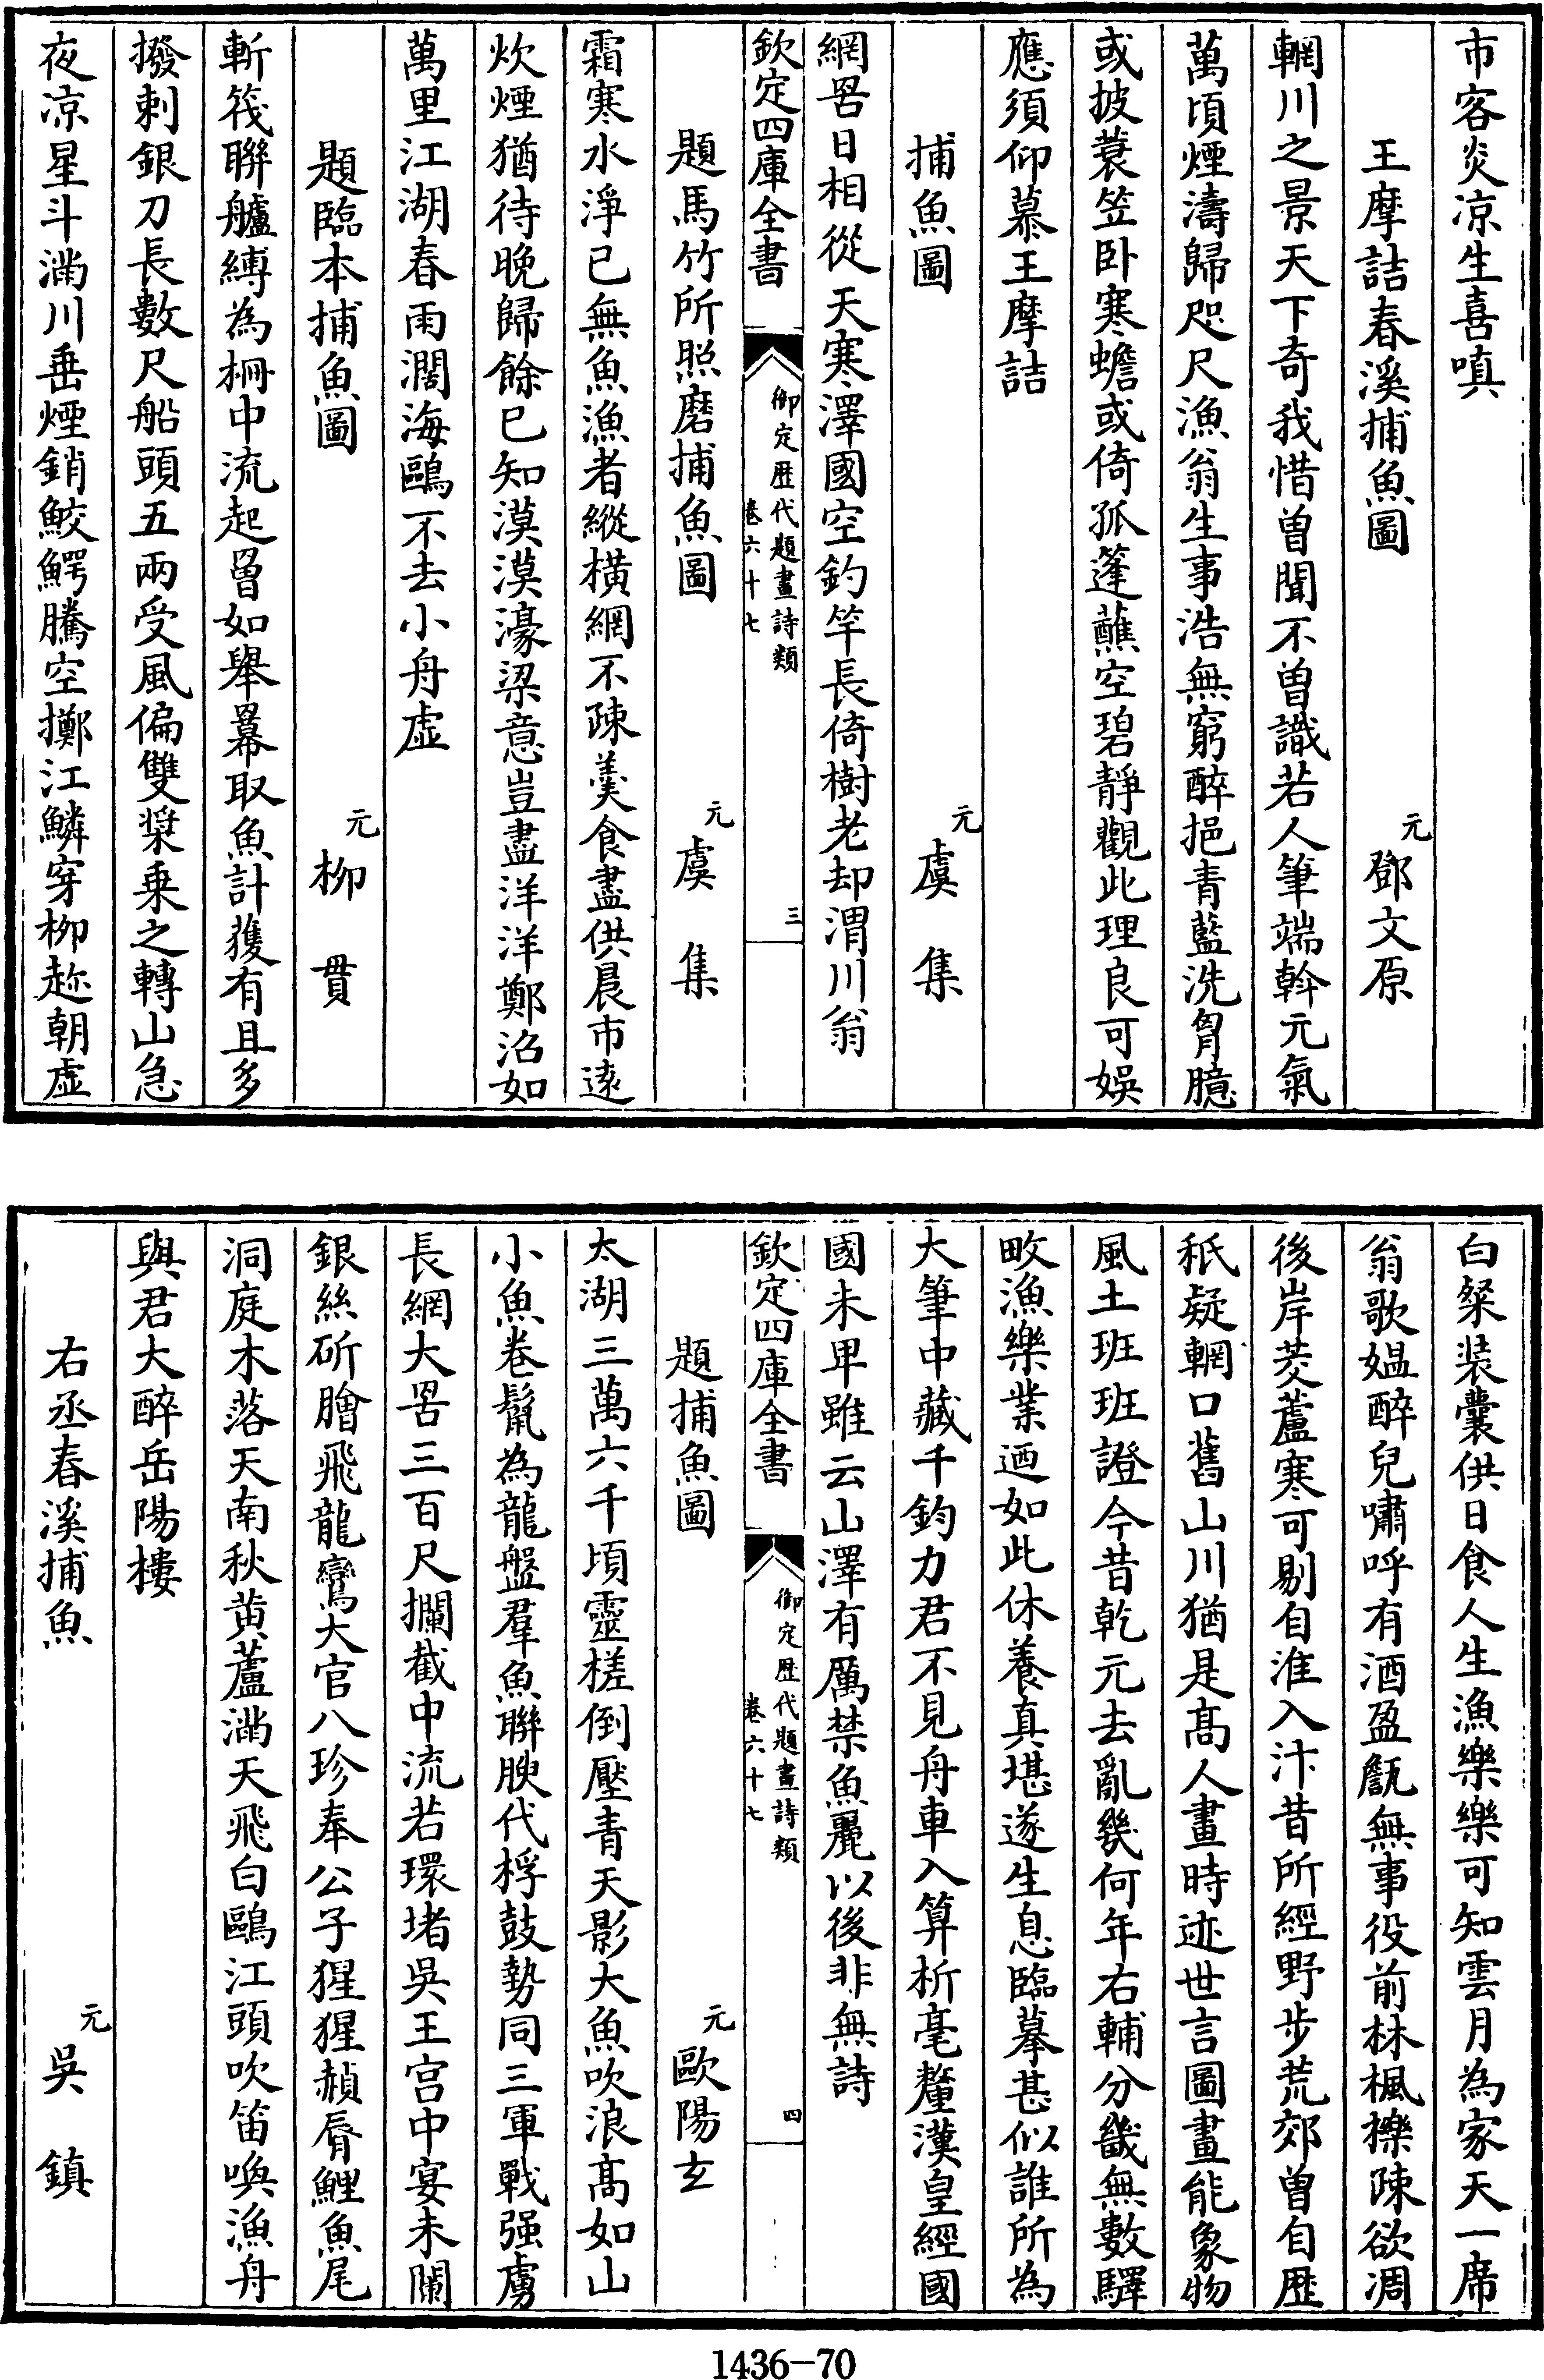 市客炎凉生喜嗔
王摩詰春溪捕魚圖　元鄧文原
輞川之景天下奇我惜曽聞不曽識若人筆端斡元氣
萬頃煙濤歸咫尺漁翁生事浩無窮醉挹青藍洗胷臆
或披蓑笠卧寒蟾或倚孤篷蘸空碧靜觀此理良可娛
應須仰慕王摩詰
捕魚圖　元虞集
網罟日相從天寒澤國空釣竿長倚樹老却渭川翁
欽定四庫全書　御定歴代題畫詩類　卷六十七　三
題馬竹所照磨捕魚圖　元虞集
霜寒水淨已無魚漁者縱横網不疎羮食盡供晨市逺
炊煙猶待晚歸餘已知漠漠濠梁意豈盡洋洋鄭沼如
萬里江湖春雨濶海鷗不去小舟虛
題臨本捕魚圖　元柳貫
斬筏聯艫縛為柵中流起罾如舉羃取魚計獲有且多
撥剌銀刀長數尺船頭五兩受風偏雙槳乗之轉山急
夜凉星斗滿川垂煙銷鮫鰐騰空擲江鱗穿柳趂朝虛
白粲装囊供日食人生漁樂樂可知雲月為家天一席
翁歌媪醉兒嘯呼有酒盈甔無事役前林楓櫟陳欲凋
後岸茭蘆寒可剔自淮入汴昔所經野步荒郊曽自歴
秖疑輞口舊山川猶是髙人畫時迹世言圖畫能象物
風土班班證今昔乾元去亂幾何年右輔分畿無數驛
畋漁樂業迺如此休養真堪遂生息臨摹甚似誰所為
大筆中藏千鈞力君不見舟車入算析毫釐漢皇經國
國未卑雖云山澤有厲禁魚麗以後非無詩
欽定四庫全書　御定歴代題畫詩類　卷六十七　四
題捕魚圖　元歐陽玄
太湖三萬六千頃靈槎倒壓青天影大魚吹浪髙如山
小魚卷鬛為龍盤羣魚聯腴代桴鼓勢同三軍戰强虜
長網大罟三百尺攔截中流若環堵吳王宫中宴未闌
銀絲斫膾飛龍鸞大官八珍奉公子猩猩赬脣鯉魚尾
洞庭木落天南秋黄蘆滿天飛白鷗江頭吹笛喚漁舟
與君大醉岳陽樓
右丞春溪捕魚　元吳鎮
1436－70